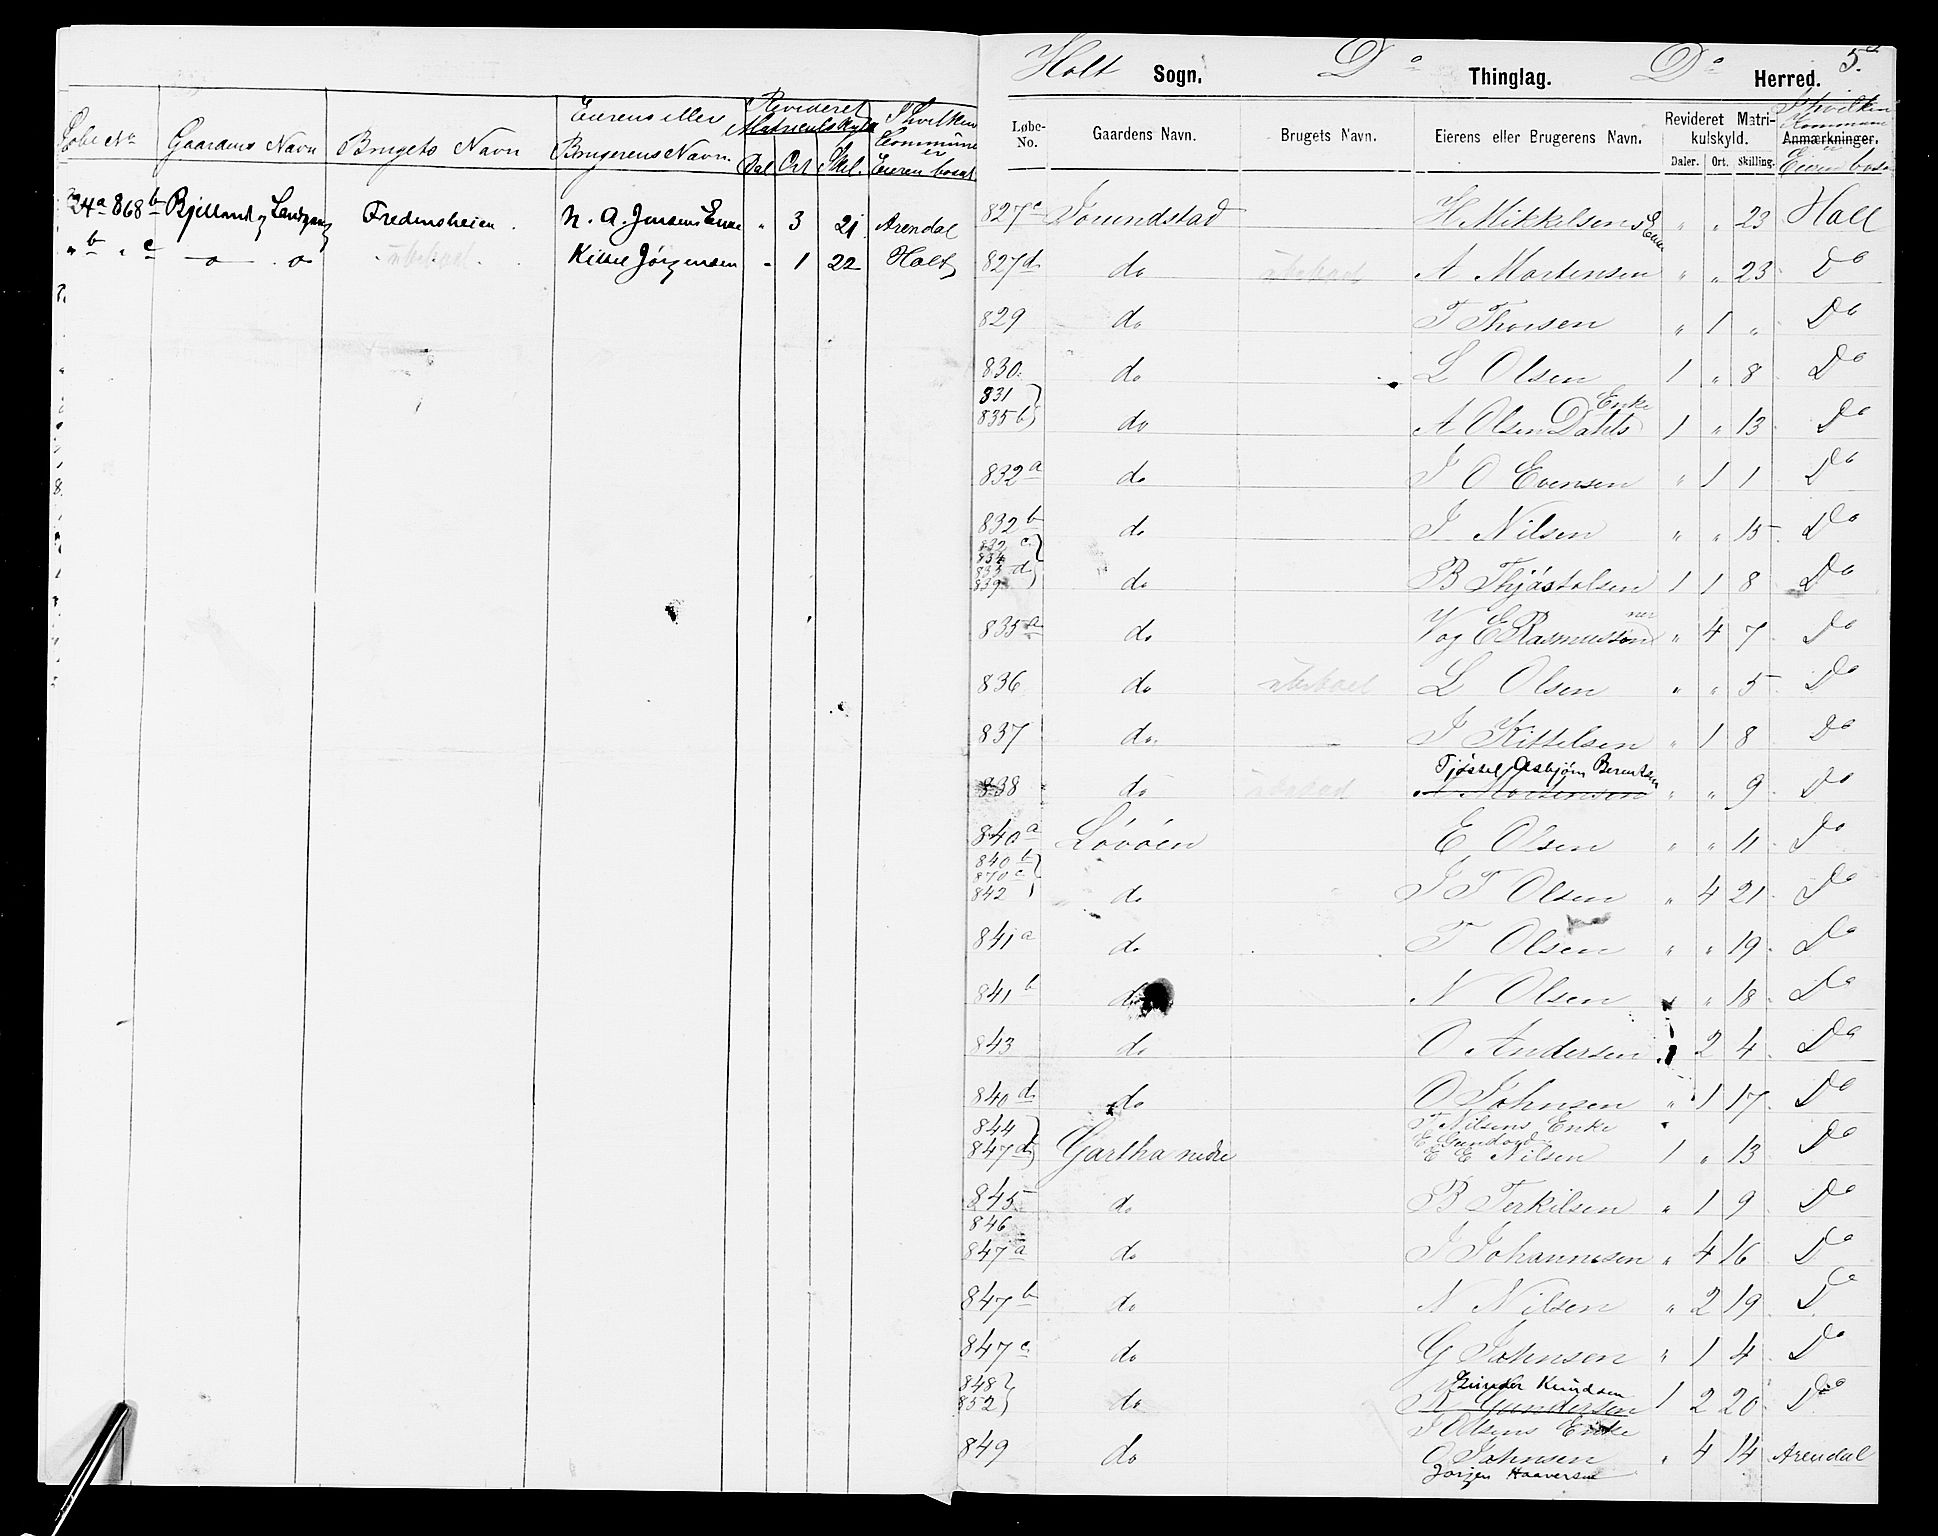 Løbe No Gaardens Navn Brugets Navn Eierens eller Brugerens Navn. Revideret Matriculskyld Dal Ort Skil. I hvilken Commune er Eieren bosat
24a 868b Bjelland og Landgang Fredensheien. N. A. Jensens Enke " 3 21 Arendal
" b " c —o— . o " ubebod . Kittel Jørgensen " 1 22 Holt
Holt Sogn. Do Thinglag. Do Herred. 5.
Løbe-No. Gaardens Navn. Brugets Navn. Eierens eller Brugerens Navn. Revideret Matrikulskyld. Daler. Ort. Skilling. Anmærkninger. I hvilken Kommune er Eieren bosat
827c Jorundstad H Mikkelsens Enke " " 23 Holt
827d do ubebod A Mortensen " " 23 Do
829 do T Thorsen " 1 " Do
830. do L Olsen 1 " 8 Do
831
835b) do A Olsen Dahls Enke 1 " 13 Do
832a do J O Evensen " 1 1 Do
832b do J Nilsen " " 15 Do
832c
834
833d
839 do B Thjøstolsen 1 1 8 Do
835a do V og E Rasmussen " 4 7 Do
836 do ubebod L Olsen " " 5 Do
837 do J Kittelsen " 1 8 Do
838 do ubebod Tjøstel Asbjørn Berentsen
A Mortensen " " 9 Do
840a Løvøen E Olsen " " 11 Do
840b
870c
842 do J T Olsen " 4 21 Do
841a do T Olsen " " 19 Do
841b do N Olsen " " 18 Do
843 do O Andersen " 2 4 Do
840d do O Johnsen " 1 17 Do
844 T Nilsens Enke
847d) Gartha nedre E E Nilsen 1 " 13 Do
845 do B Terkilsen " 1 9 Do
846
847a do J Johannesen " 4 16 Do
847b do N Nilsen " 2 19 Do
847c do G Johnsen " 1 4 Do
848
852) do Gunder Knudsen
N Gundersen 1 2 20 Do
J Olsens Enke
849 do O Johnsen " 4 14 Arendal
Jørgen Haaversen